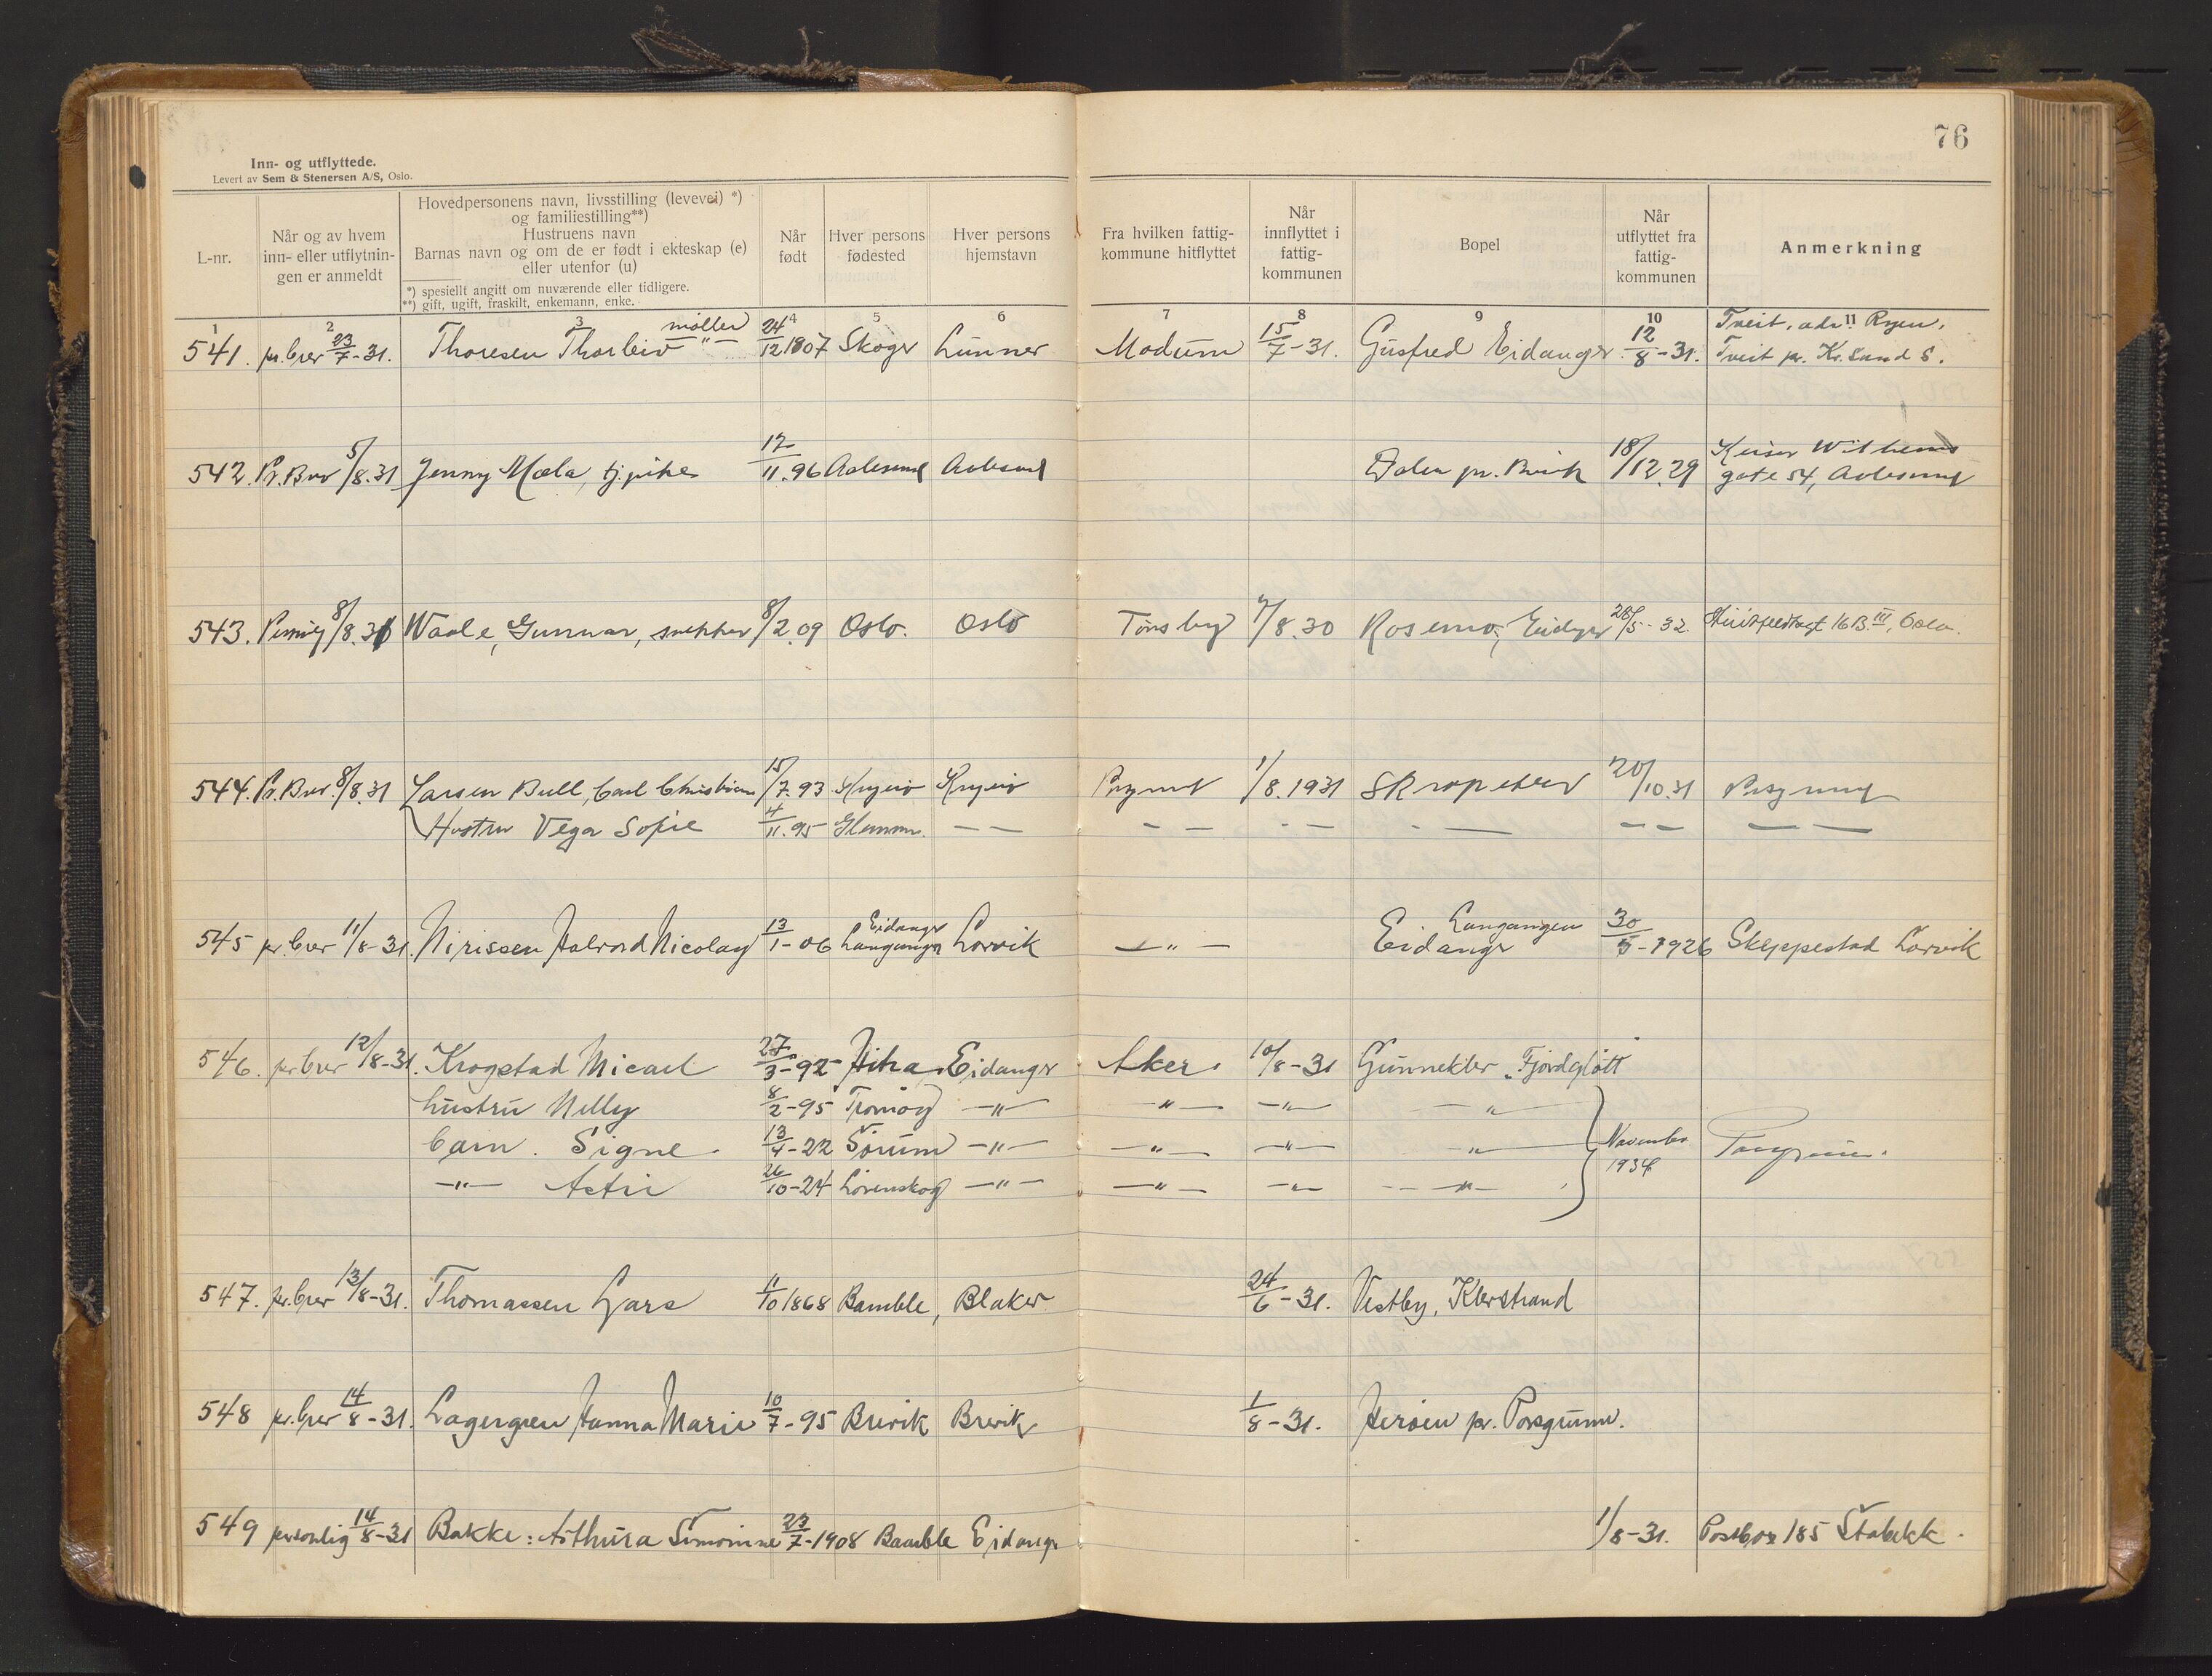 76
Inn- og utflyttede.
Levert av Sem & Stenersen A/S, Oslo.
L-nr.
Når og av hvem
inn- eller utflytnin-
gen er anmeldt
Hovedpersonens navn, livsstilling (levevei) *)
og familiestilling**)
Hustruens navn
Barnas navn og om de er født i ekteskap (e)
eller utenfor (u)
*) spesiellt angitt om nuværende eller tidligere.
**) gift, ugift, fraskilt, enkemann, enke.
Når
født
Hver persons
fødested
Hver persons
hjemstavn
Fra hvilken fattig-
kommune hitflyttet
Når
innflyttet i
fattig-
kommunen
Bopel
Når
utflyttet fra
fattig-
kommunen
Anmerkning
1 2 3 4 5 6 7 8 9 10 11
møller Tveit, adr. Ryen,
541. pr. brev 23/7-31. Thoresen Thorleiv -"- 24/12 1807 Skoger Lunner Modum 15/7-31. Gusfred Eidanger 12/8-31. Tveit pr. Kr.sand S.
542. Pr. Brev 5/8.31 Jenny Mæla, tj.pike 17/11.96 Aalesund Aalesund Dalen pr. Brevik 18/12.29 Keiser Wilhelms
gate 54, Aalesund
543. 8/8.31 Waale, Gunnar, snekker 8/2.09 Oslo. Oslo Tønsberg 7/8.30 Eidanger 28/5-32. 16 B. III, Oslo.
544. Pr. Brev. 8/8.31 Larsen Bull, Carl Christian 15/7.93 Kragerø Kragerø Porsgrunn 1/8.1931 Skrapeklev 20/10.31 Porsgrunn
Hustru Vega Sofie 4/11.95 Glemmen. — — - - - - - — — — — —
Eidanger Langangen
545 pr. brev 11/8-31. Nirissen Halvord Nicolay 13/1-06 Langangen Larvik -"- Eidanger 30/5-1926 Skeppestad Larvik
546. pr. brev 12/8-31. Krogstad Micael 27/3-92 Hitra. Eidanger Aker. 10/8-31 Gunneklev "Fjordgløtt"
hustru Nelly 8/2-95 Tromøy -"- -"- -"- -"-
barn. Signe. 13/4-22 Sørum -"- -"- -"- -"- November
1934 Porsgrunn.
-"- 26/10-24 Lørenskog -"- -"- -"- -"-
547. pr. brev 13/8-31. Thomassen Lars 11/10 1868 Bamble, Blaker 24/6-31. Vestby, Klevstrand
548 pr. brev 14/8-31. Lagergren Hanna Marie 10/7-95 Brevik Brevik 1/8-31. Herøen pr. Porsgrunn.
549 personlig 14/8-31 Bakke: Arthura Simonine 23/7-1908 Bamble Eidanger 1/8-31. Postbox 185 Stabekk.